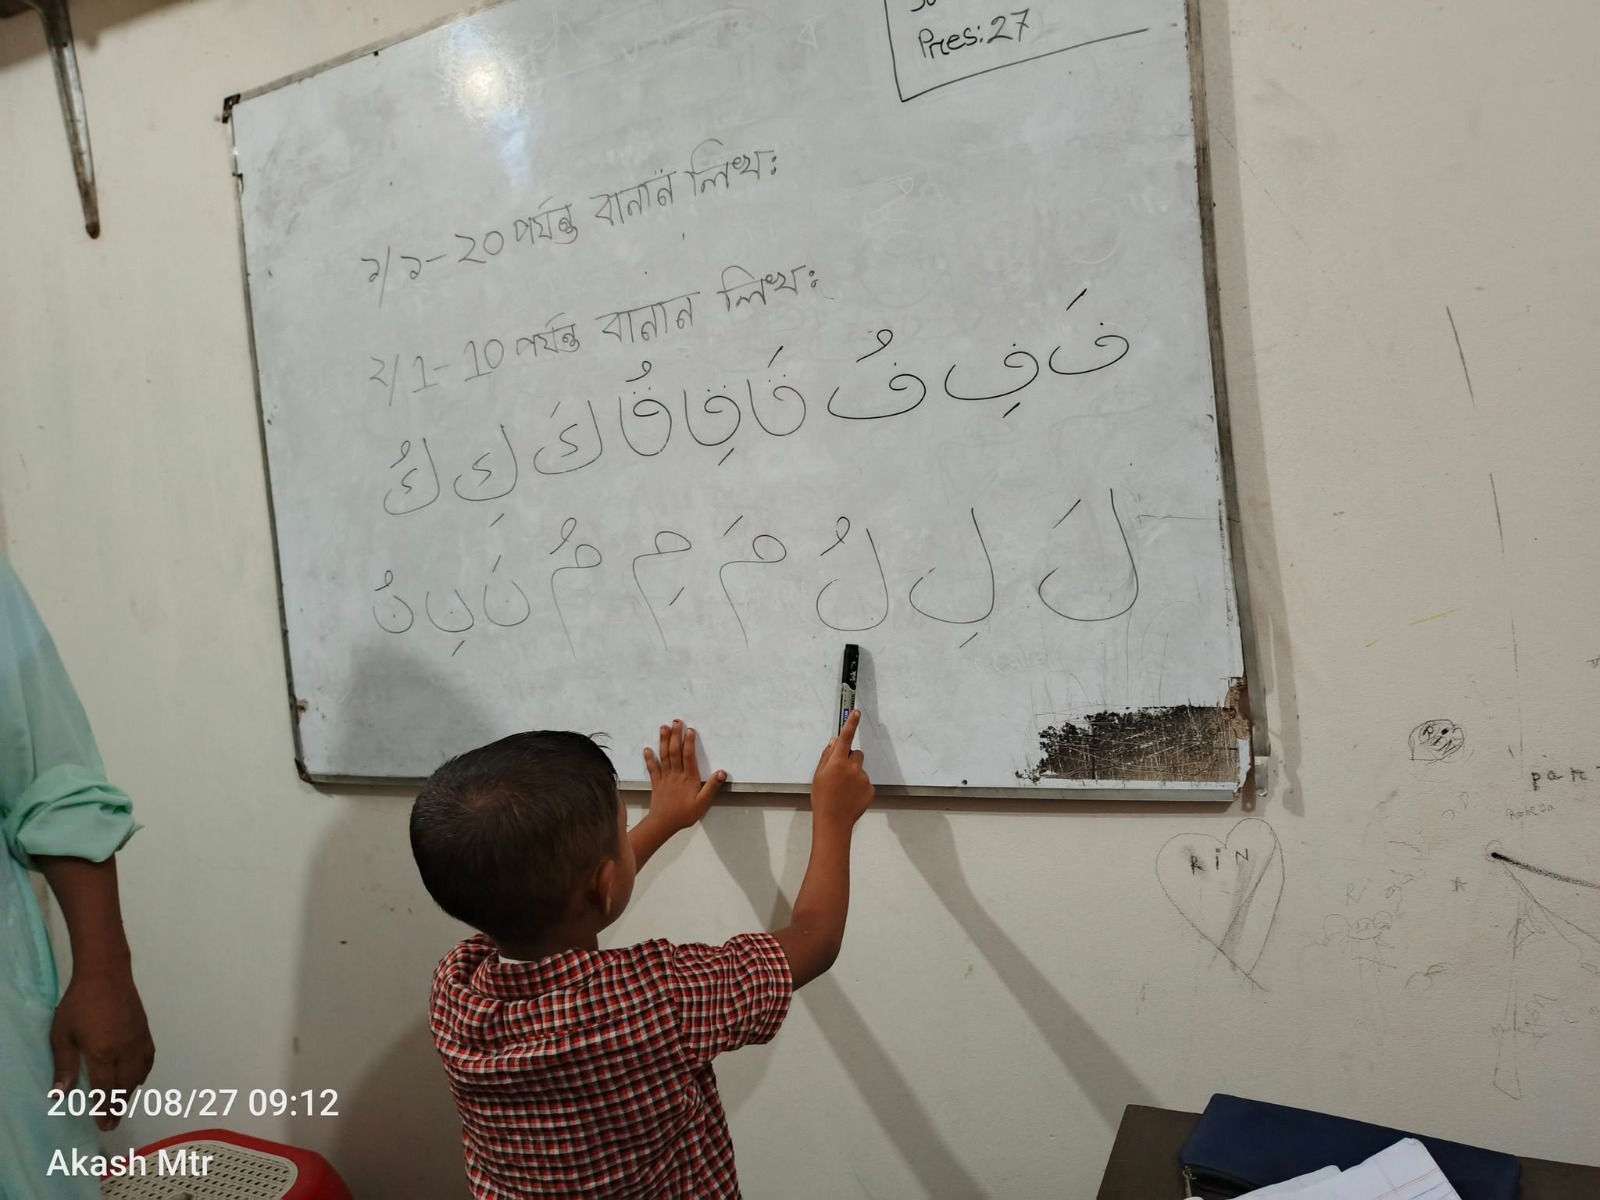 Pres: 27
১/ ১-২০ পর্যন্ত বানান লিখঃ
২/ 1-10 পর্যন্ত বানান লিখঃ
فَ فِ فُ قَ قِ قُ كَ كِ كُ
لَ لِ لُ مَ مِ مُ نَ نِ نُ
RiN
RiN
2025/08/27 09:12
Akash Mtr